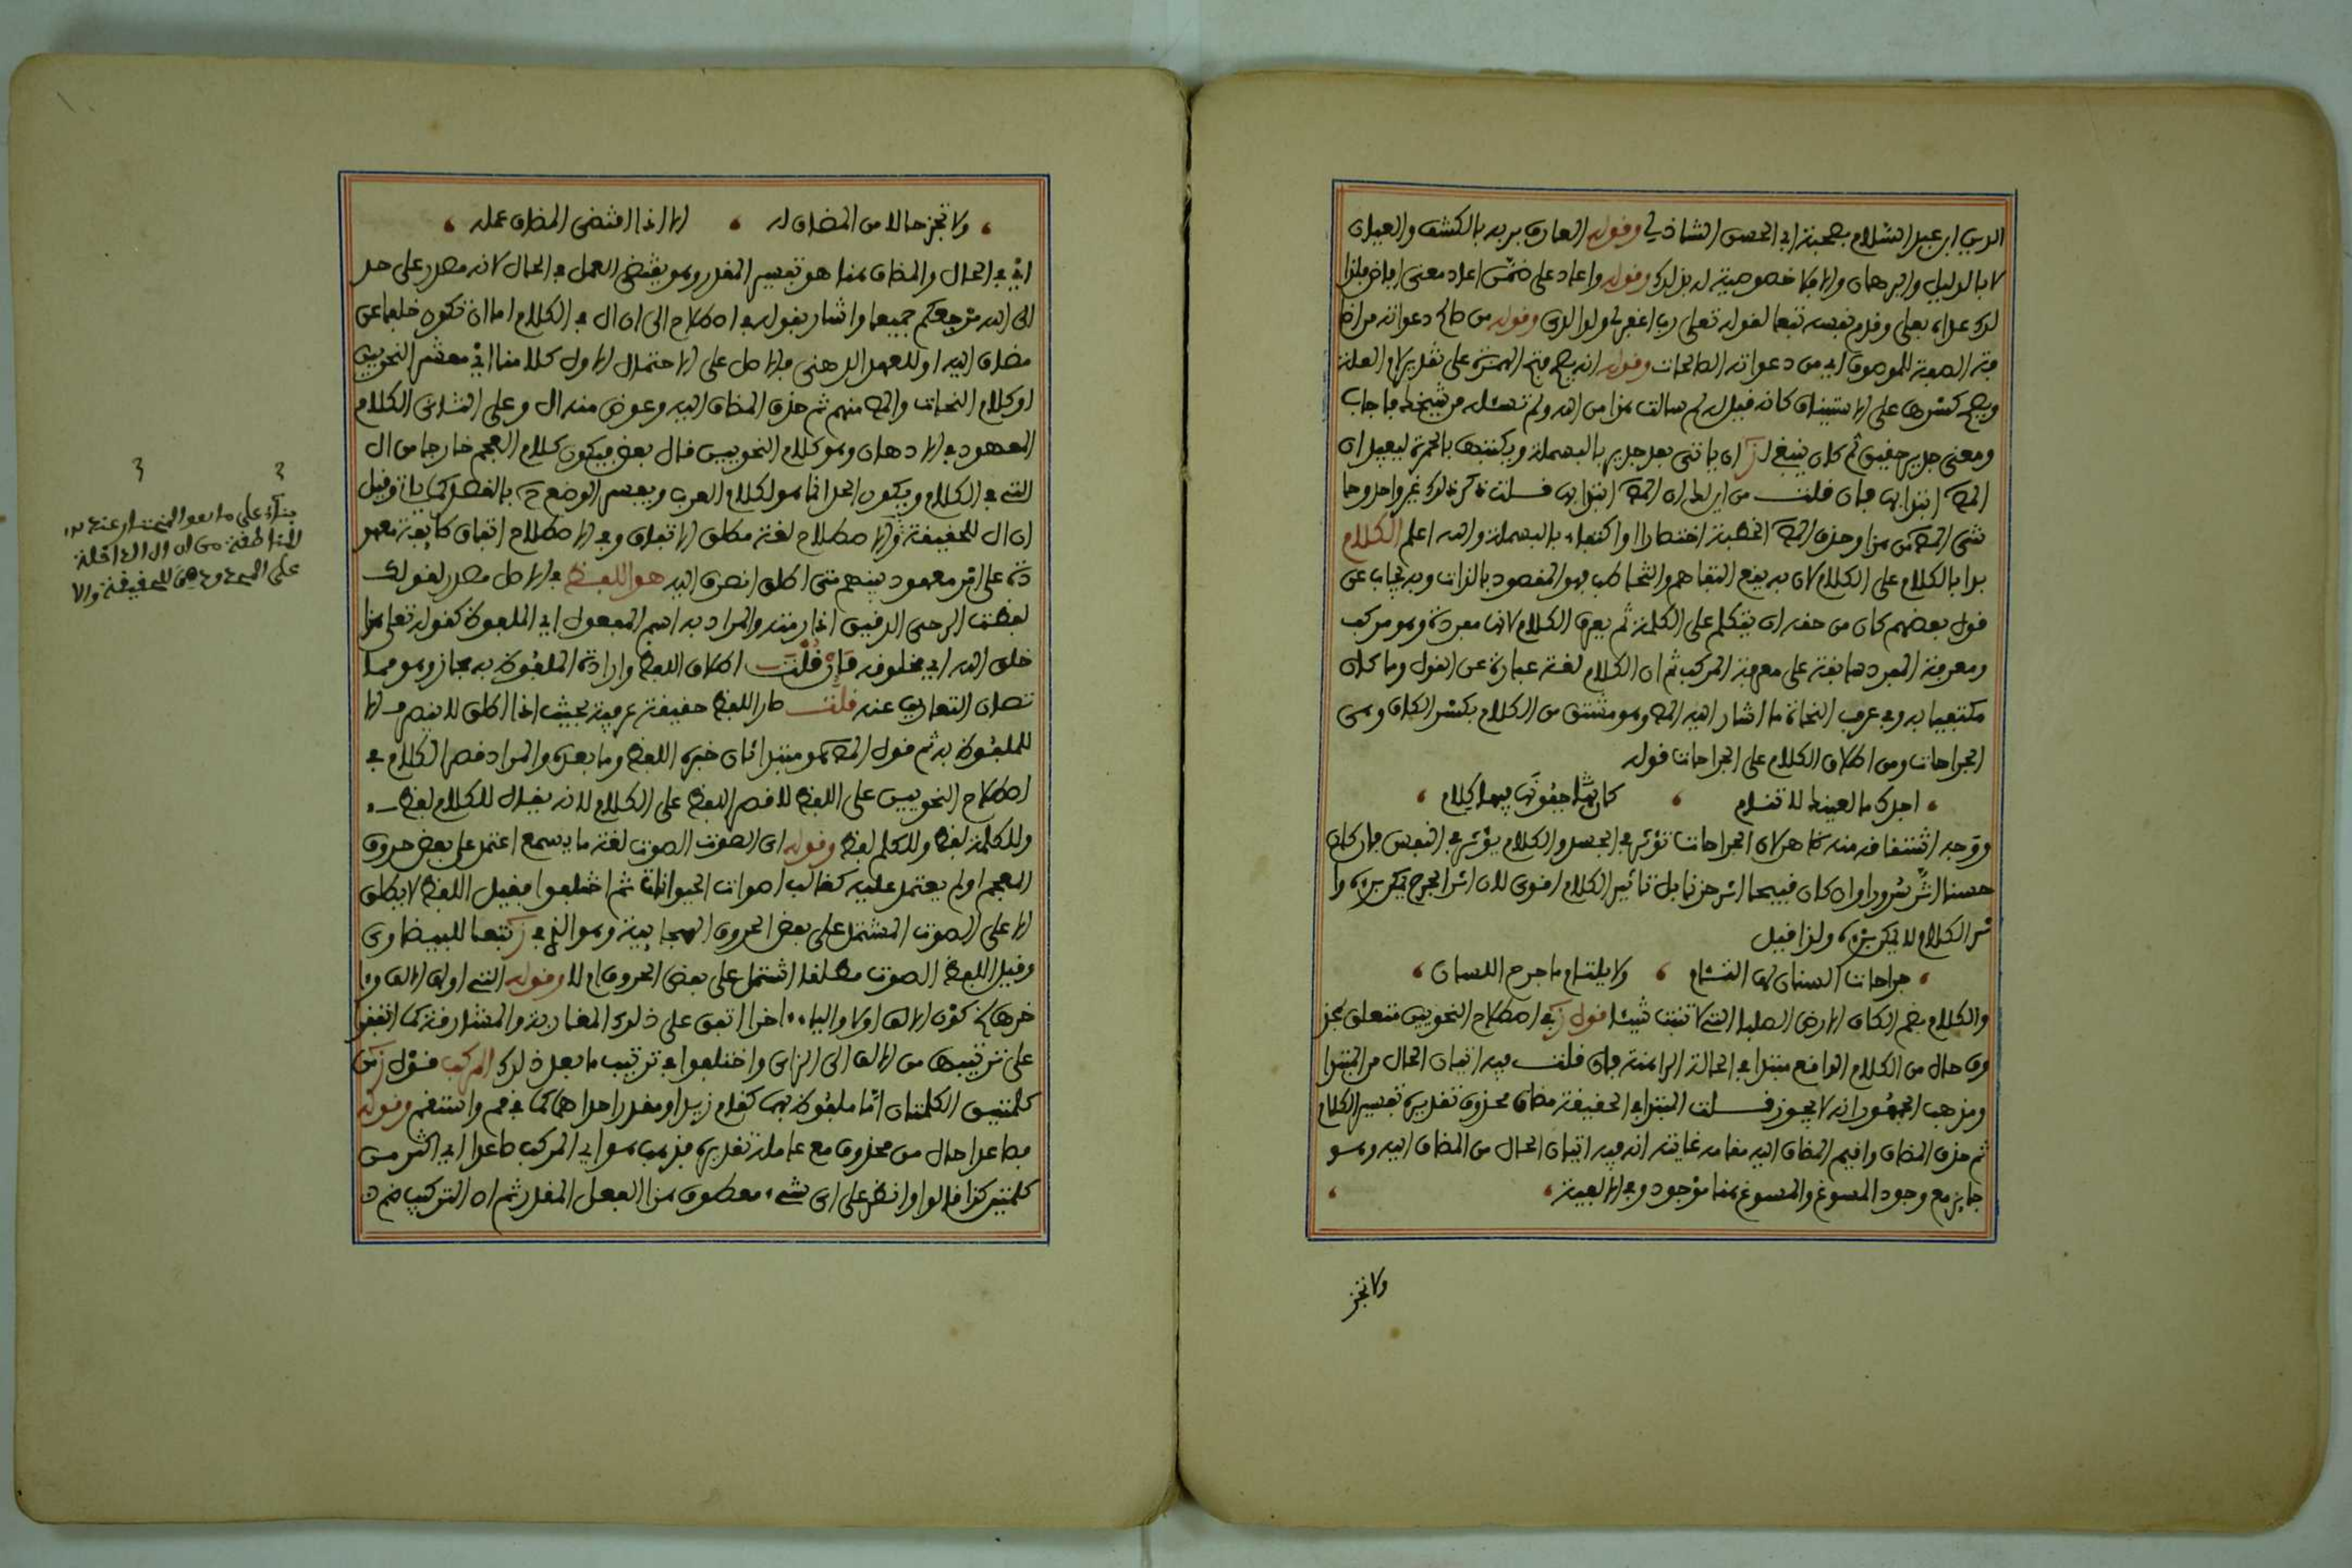 الدين ابن عبد السلام بصحبة ابي الحسن الشاذلي وقوله العارف بربه بالكشف والعيان
لا بالدليل والبرهان والا فلا خصوصية له بذلك وقوله واعاد على ضمن اعاد معنى افاض فلذا
لذلك عداه بعلى وقدم نفسه تبعا لقوله تعلى رب اغفر لي ولوالدي وقوله من صالح دعواته من اضا
فة الصفة للموصوف اي من دعواته الصالحات وقوله انه يصح فتح الهمزة على تقدير لام العلة
ويصح كسرها على الاستيناف كانه قيل له لم سالت هذا من الله ولم تسئله من شيخك فاجاب
ومعنى جدير حقيق ثم كان ينبغي لز ان ياتي بعد جدير بالبسملة ويكتبها بالحمرة ليفيد ان
المص ابتدا بها فان قلت من اين لنا ان المص ابتدا بها قلت ذكر ذلك غير واحد وحا
شى المص من هذا وحذف المص الخطبة اختصارا او اكتفاء بالبسملة والله اعلم الكلام
بدا بالكلام على الكلام لان به يقع التفاهم والتخاطب فهو المقصود بالذات وبه يجاب عن
قول بعضهم كان من حقه ان يتكلم على الكلمة ثم يعرف الكلام لانها مفردة وهو مركب
ومعرفة المفرد سابقة على معرفة المركب ثم ان الكلام لغة عبارة عن القول وما كان
مكتفيا به وفي عرف النحاة ما اشار اليه المص وهو مشتق من الكلام بكسر الكاف وهى
الجراحات ومن اطلاق الكلام على الجراحات قوله
، اجدك ما لعينك لا تنام ، كان جفونها فيها كلام ،
ووجه اشتقاقه منه ظاهر لان الجراحات تؤثر في الجسد والكلام يؤثر في النفس فان كان
حسنا اثر سرورا وان كان قبيحا اثر حزنا بل تاثير الكلام اقوى لان اثر الجرح يمكن برؤه وا
ثر الكلام لا يمكن برؤه ولذا قيل
، جراحات السنان لها التئام ، ولا يلتام ما جرح اللسان ،
والكلام بضم الكاف الارض الصلبة التي لا تنبت شيئا قول ز في اصطلاح النحويين متعلق بمحذ
وف حال من الكلام الواقع مبتدا في الحالة الراهنة فان قلت فيه اتيان الحال من المبتدا
ومذهب الجمهور انه لا يجوز قلت المبتدا في الحقيقة مضاف محذوف تقديره تفسير الكلام
ثم حذف المضاف واقيم المضاف اليه مقامه غايته انه فيه اتيان الحال من المضاف اليه وهو
جايز مع وجود المسوغ والمسوغ هنا موجود وفي الالفية ، ،
ولا تجز
، ولا تجز حالا من المضاف له ، الا اذا اقتضى المضاف عمله ،
اي في الحال والمضاف هنا هو تفسير المقدر وهو يقتضي العمل في الحال لانه مصدر على حد
الى الله مرجعكم جميعا واشار بقوله في اصطلاح الى ان ال في الكلام اما ان تكون خلفا عن
مضاف اليه او للعهد الذهني والاصل على الاحتمال الاول كلامنا اي معشر النحويين
او كلام النحات والمص منهم ثم حذف المضاف اليه وعوض منه ال وعلى الثاني الكلام
المعهود في الاذهان وهو كلام النحويين قال بعض فيكون كلام العجم خارجا من ال
التي في الكلام ويكون الحد انما هو لكلام العرب ويفسر الوضع ح بالقصد كما ياتي وقيل
ان ال للحقيقة والاصطلاح لغة مطلق الاتفاق وفي الاصطلاح اتفاق طايفة معهو
دة على امر معهود بينهم متى اطلق انصرف اليه هو اللفظ في الاصل مصدر لقولك
لفظت الرحى الدقيق اذا رمته والمراد به اسم المفعول اي الملفوظ كقوله تعلى هذا
خلق الله اي مخلوقه فإن قلت اطلاق اللفظ وارادة الملفوظ به مجاز وهو مما
تصان التعاريف عنه قلت صار اللفظ حقيقة عرفية بحيث اذا اطلق لا ينصرف الا
للملفوظ به ثم قول المص هو مبتدا ثان خبره اللفظ وما بعده والمراد قصر الكلام في
اصطلاح النحويين على اللفظ لا قصر اللفظ على الكلام لانه يقال للكلام لفظ ،
وللكلمة لفظ وللكلم لفظ وقوله اي الصوت الصوت لغة ما يسمع اعتمد على بعض حروف
المعجم او لم يعتمد عليه كغالب اصوات الحيوانات ثم اختلفوا فقيل اللفظ لا يطلق
الا على الصوت المشتمل على بعض الحروف الهجايية وهو الذي في ز تبعا للبيضاوى
وقيل اللفظ الصوت مطلقا اشتمل على بعض الحروف ام لا وقوله التي اولها الالف واا
خرها كون الالف اولا والياء اخرا اتفق على ذلك المغاربة والمشارقة كما اتفقوا
على ترتيبها من الالف الى الزاى واختلفوا في ترتيب ما بعد ذلك المركب قول ز من
كلمتين الكلمتان اما ملفوظ بهما كقام زيد او مقدر احداهما كما في قم واستقم وقوله
فصاعدا حال من محذوف مع عامله تقديره فذهب هو اي المركب صاعدا اي اكثر من
كلمتين كذا قالوا وانظر على اى شيء معطوف هذا الفعل المقدر ثم ان التركيب ضم
بناء على ما هو المختار عند
المناطقة من ان ال الداخلة
على المعروف هي للحقيقة والا